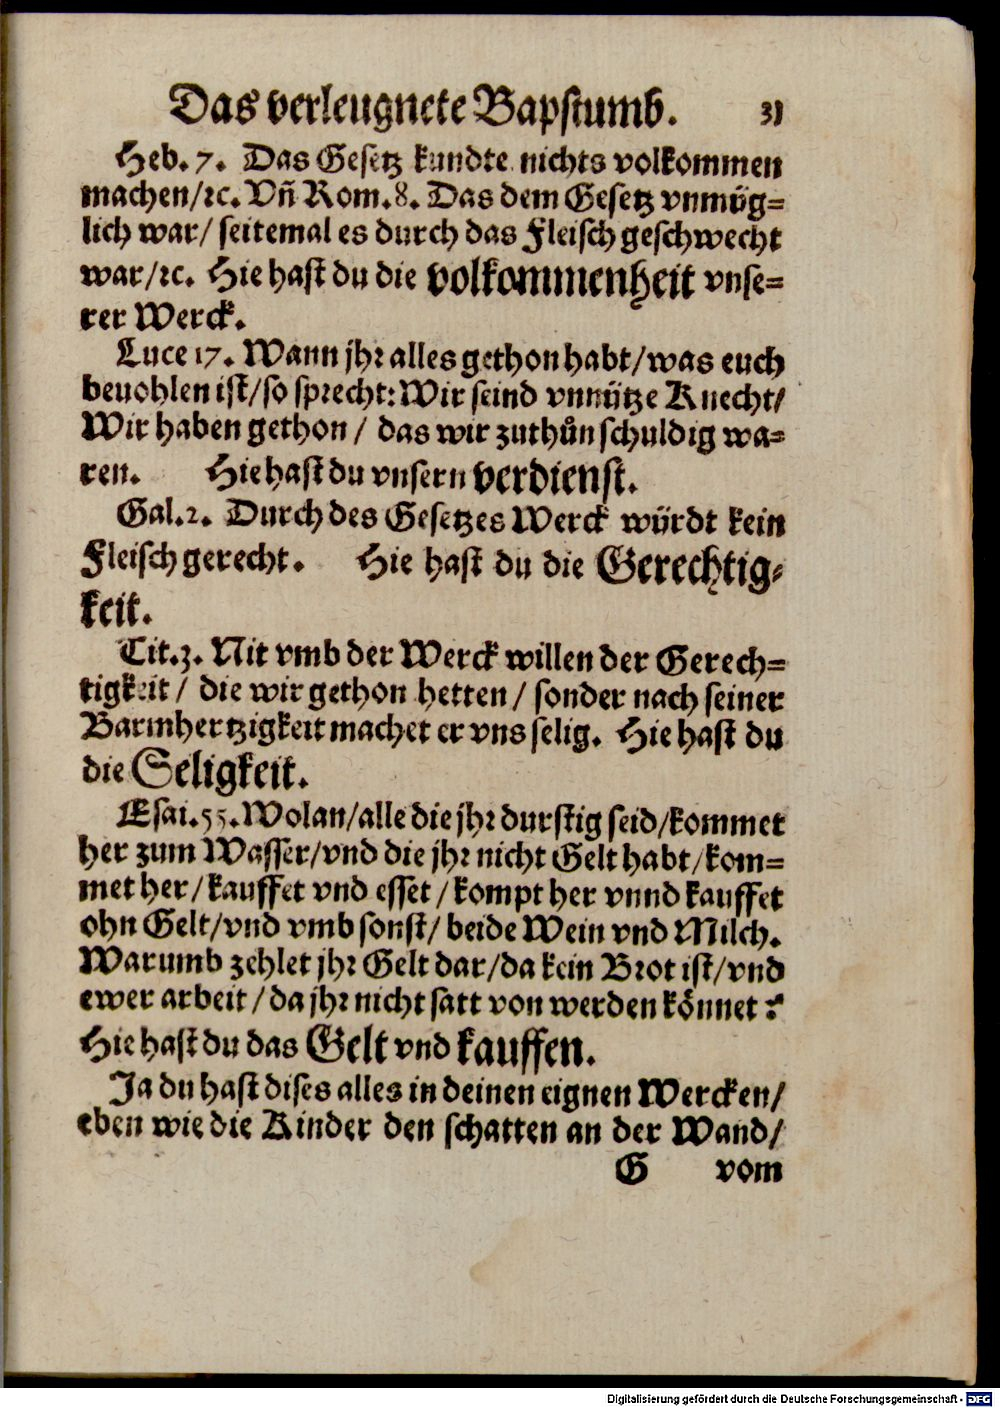 Das verleugnete Bapstumb. 31
Heb. 7. Das Gesetz kundte nichts volkommen
machen/ꝛc. Vñ Rom. 8. Das dem Gesetz vnmüg=
lich war/ seitemal es durch das Fleisch geschwecht
war/ꝛc. Hie hast du die volkommenheit vnse=
rer Werck.
Luce 17. Wann jhr alles gethon habt/was euch
beuohlen ist/so sprecht: Wir seind vnnütze Knecht/
Wir haben gethon/ das wir zuthůn schuldig wa=
ren. Hie hast du vnsern verdienst.
Gal. 2. Durch des Gesetzes Werck würdt kein
Fleisch gerecht. Hie hast du die Gerechtig=
keit.
Tit. 3. Nit vmb der Werck willen der Gerech=
tigkeit/ die wir gethon hetten/ sonder nach seiner
Barmhertzigkeit machet er vns selig. Hie hast du
die Seligkeit.
Esai. 55. Wolan/alle die jhr durstig seid/kommet
her zum Wasser/vnd die jhr nicht Gelt habt/kom=
met her/kauffet vnd esset/kompt her vnnd kauffet
ohn Gelt/vnd vmb sonst/ beide Wein vnd Milch.
Warumb zehlet jhr Gelt dar/da kein Brot ist/vnd
ewer arbeit/da jhr nicht satt von werden könnet?
Hie hast du das Gelt vnd kauffen.
Ja du hast dises alles in deinen eignen Wercken/
eben wie die Kinder den schatten an der Wand/
G vom
Digitalisierung gefördert durch die Deutsche Forschungsgemeinschaft - DFG